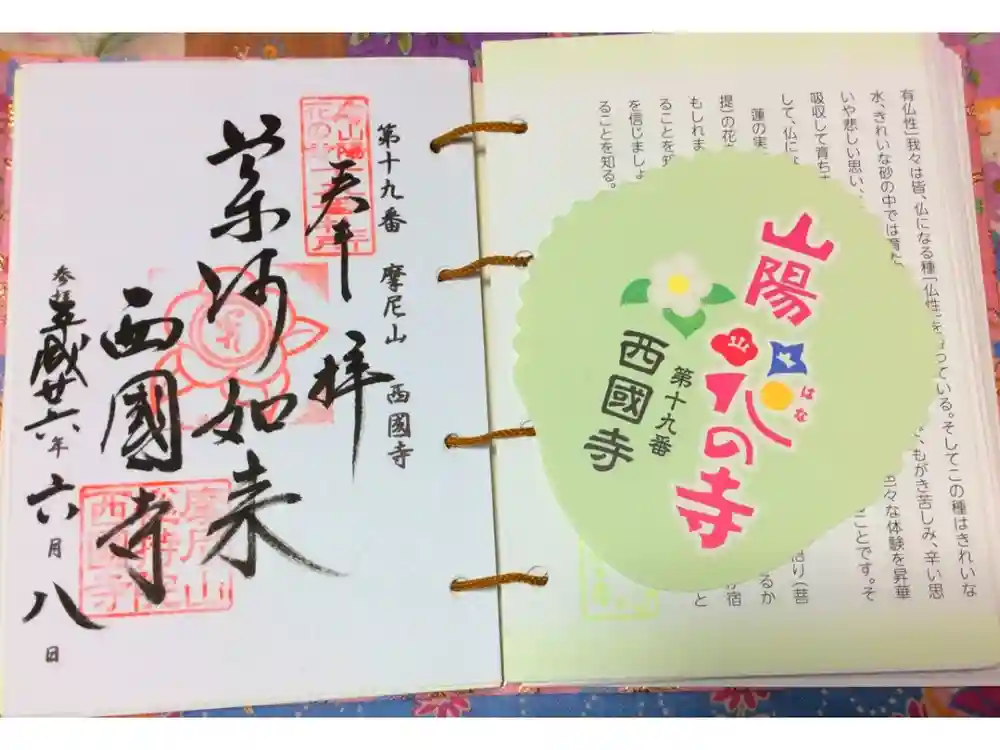 有仏性」我々は皆、仏になる種「仏性」をもっている。そしてこの種はきれいな
水、きれいな砂の中では育た
いや悲しい思い、 もがき苦しみ、辛い思
吸収して育ちま 々な体験を昇華
して、仏にな ことです。そ
蓮の実
提)の花 悟り(菩
もしれま るか
ることを知 宿
を信じましょ と
ることを知る。
山陽
花の寺
はな
第十九番
西國寺
第十九番 摩尼山 西國寺
奉拝
薬師如来
西國寺
参拝 平成廿六年六月八日
摩尼山
西國寺